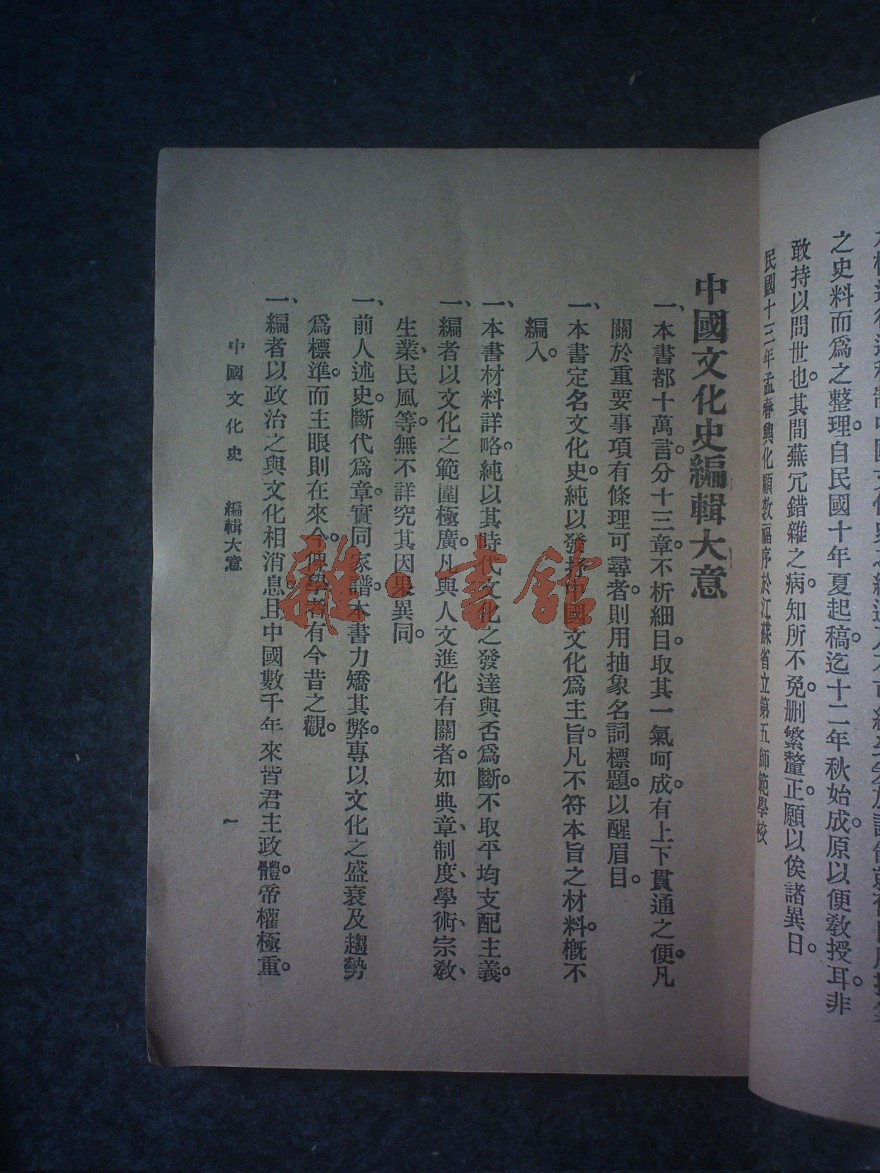 之史料而爲之整理。自民國十年夏起稿。迄十二年秋始成。原以便敎授耳。非
敢持以問世也。其間蕪冗錯雜之病。知所不免。删繁釐正。願以俟諸異日。
民國十三年孟春興化顧敎福序於江蘇省立第五師範學校
中國文化史編輯大意
一、本書都十萬言。分十三章。不析細目。取其一氣呵成。有上下貫通之便。凡
關於重要事項有條理可尋者。則用抽象名詞標題。以醒眉目。
一、本書定名文化史。純以發抒中國文化爲主旨。凡不符本旨之材料。槪不
編入。
一、本書材料詳略。純以其時代文化之發達與否爲斷。不取平均支配主義。
一、編者以文化之範圍極廣。凡與人文進化有關者。如典章、制度、學術、宗敎、
生業、民風等。無不詳究其因果異同。
一、前人述史。斷代爲章。實同家譜。本書力矯其弊。專以文化之盛衰及趨勢
爲標準。而主眼則在來今。俾學者有今昔之觀。
一、編者以政治之與文化相消息。且中國數千年來皆君主政體。帝權極重。
中國文化史 編輯大意
一
雜·書館